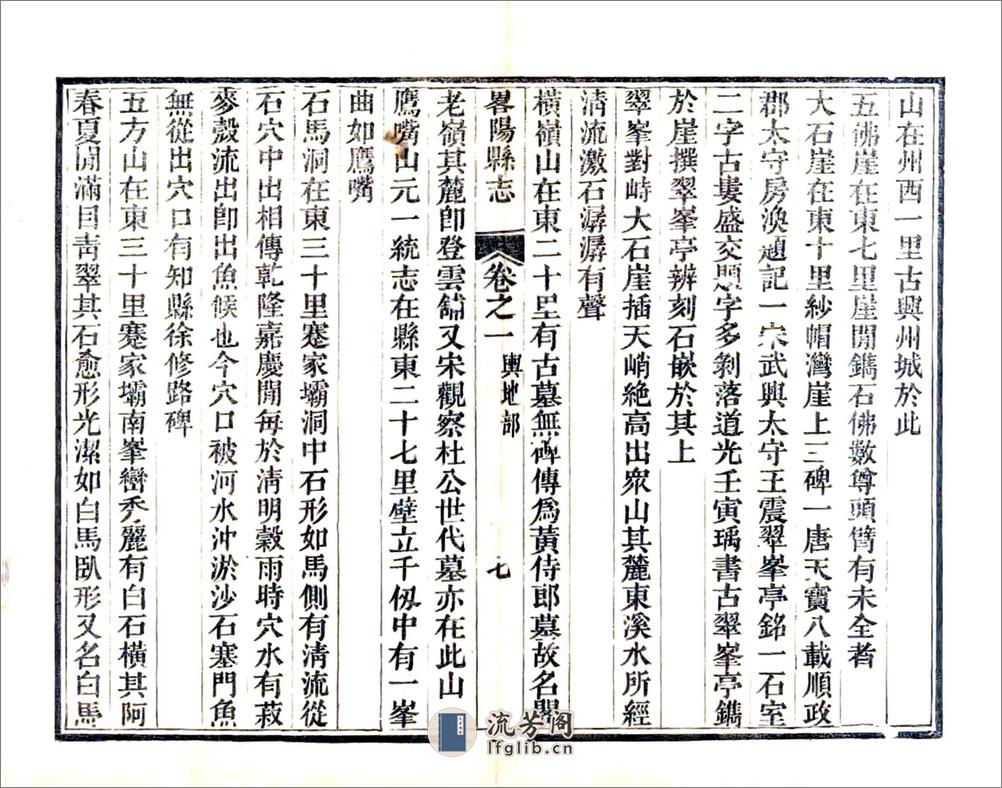 山在州西一里古興州城於此
五佛崖在東七里崖間鐫石佛數尊頭臂有未全者
大石崖在東十里紗帽灣崖上三碑一唐天寶八載順政
郡太守房渙題記一宋武興太守王震翠峯亭銘一石室
二字古婁盛交題字多剝落道光壬寅瑀書古翠峯亭鐫
於崖撰翠峯亭辨刻石嵌於其上
翠峯對峙大石崖插天峭絶高出眾山其麓東溪水所經
清流激石潺潺有聲
橫嶺山在東二十里有古墓無碑傳爲黃侍郎墓故名
畧陽縣志
卷之一
輿地部
七
老嶺其麓卽登雲舖又宋觀察杜公世代墓亦在此山
鷹嘴山元一統志在縣東二十七里壁立千仭中有一峯
曲如鷹嘴
石馬洞在東三十里蹇家壩洞中石形如馬側有清流從
石穴中出相傳乾隆嘉慶間每於清明穀雨時穴水有菽
麥殼流出卽出魚候也今穴口被河水沖淤沙石塞門魚
無從出穴口有知縣徐修路碑
五方山在東三十里蹇家壩南峯巒秀麗有白石橫其阿
春夏間滿目靑翠其石愈形光潔如白馬臥形又名白馬
流芳阁
lfglib.cn